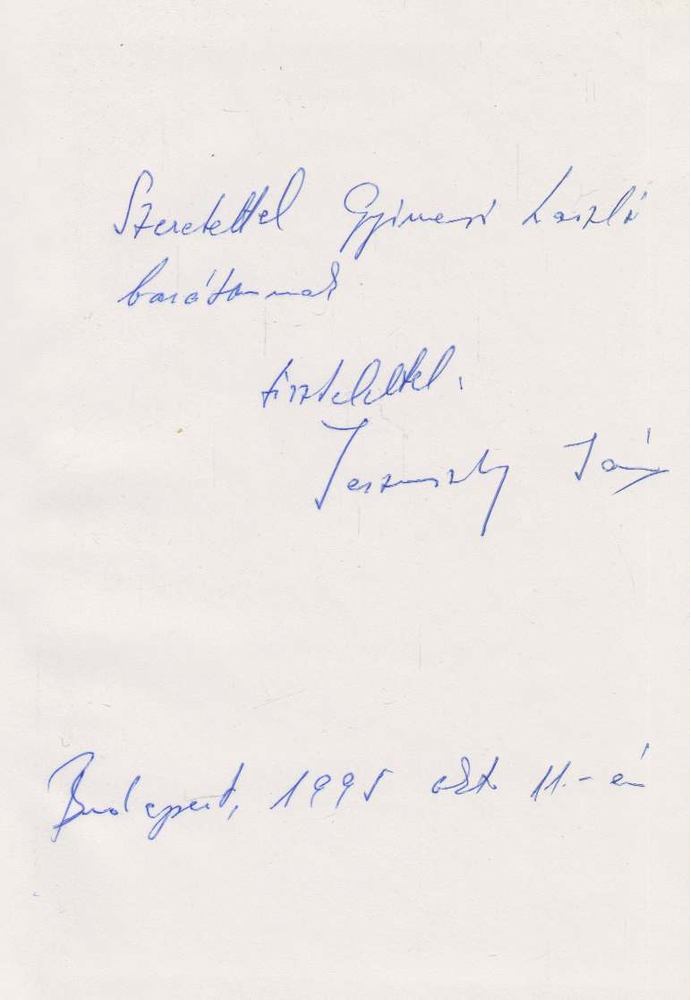 Szeretettel Gyimesi László
barátomnak
tisztelettel.
János
Budapest, 1995 okt 11.-én